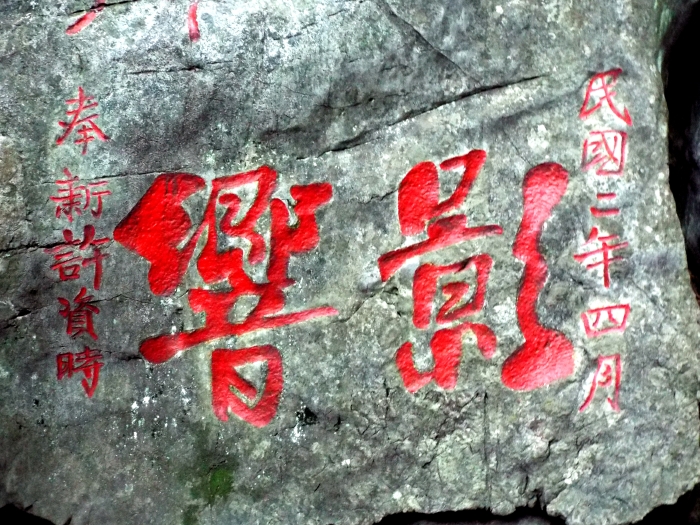 民國二年四月
影響
奉新許資時